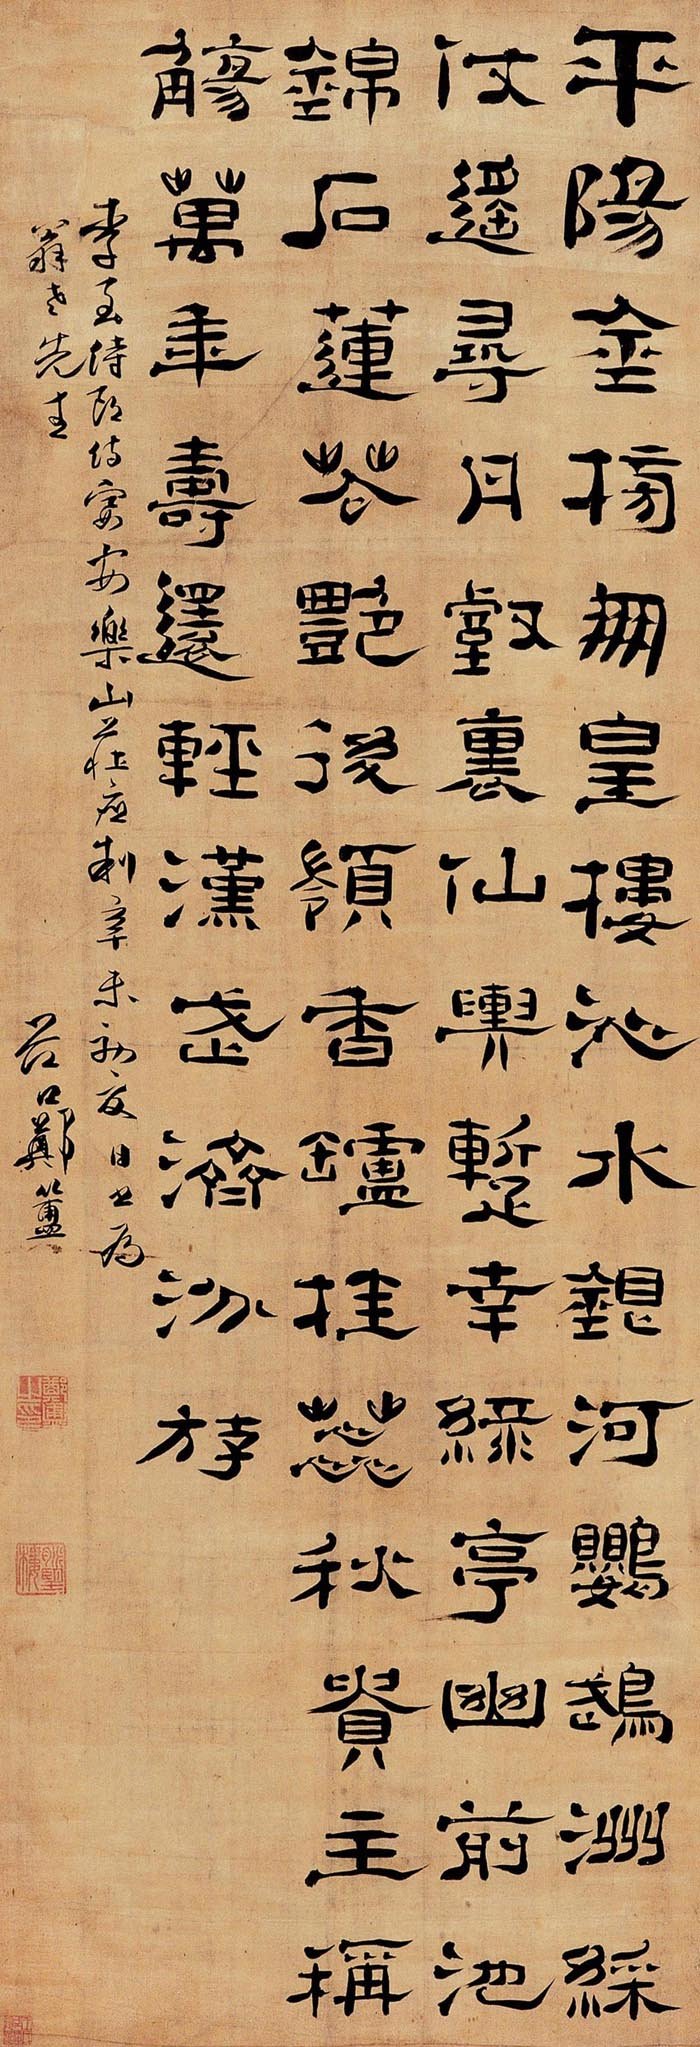 平陽金榜鳳皇樓沁水銀河鸚鵡洲綵
仗遥尋丹壑裏仙輿暫幸綠亭幽前池
錦石蓮花艷後嶺香罏桂蕊秋貴主稱
觴萬年壽還輕漢武濟汾游
李侍郎侍宴安樂山莊應制辛未初夏日書為
翁老先生
谷口鄭簠
鄭簠之印